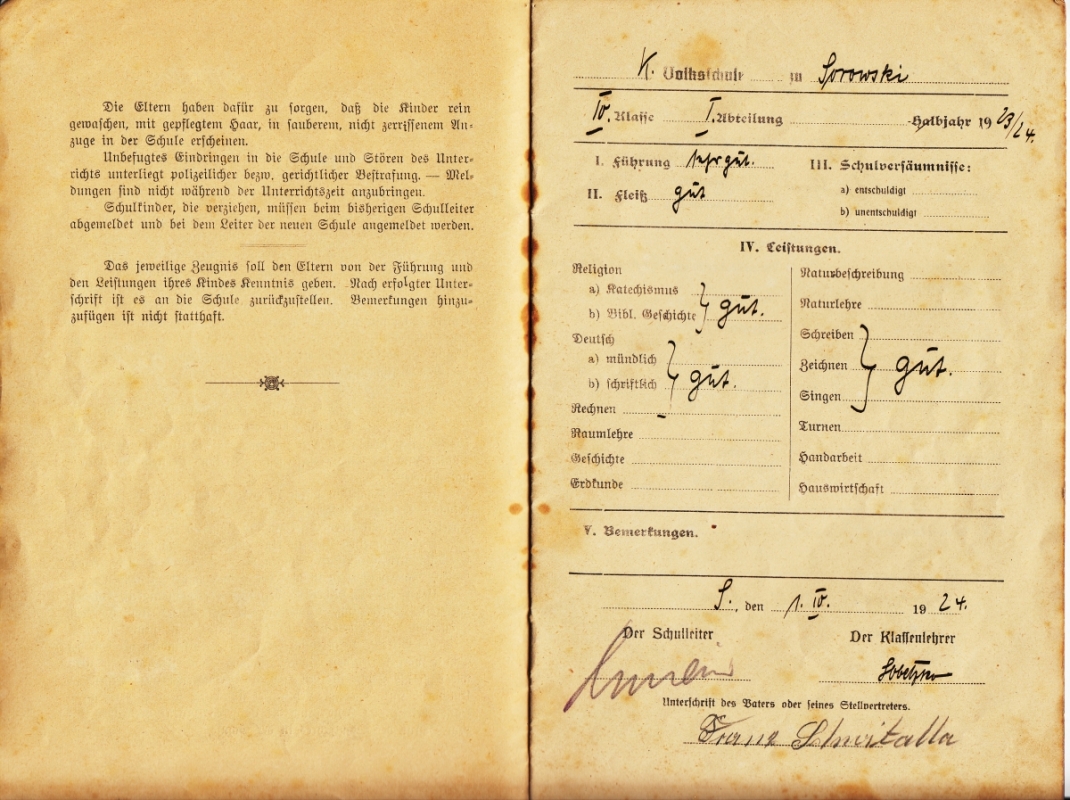 Die Eltern haben dafür zu sorgen, daß die Kinder rein
gewaschen, mit gepflegtem Haar, in sauberem, nicht zerrissenem An-
zuge in der Schule erscheinen.
Unbefugtes Eindringen in die Schule und Stören des Unter-
richts unterliegt polizeilicher bezw. gerichtlicher Bestrafung. — Mel-
dungen sind nicht während der Unterrichtszeit anzubringen.
Schulkinder, die verziehen, müssen beim bisherigen Schulleiter
abgemeldet und bei dem Leiter der neuen Schule angemeldet werden.
Das jeweilige Zeugnis soll den Eltern von der Führung und
den Leistungen ihres Kindes Kenntnis geben. Nach erfolgter Unter-
schrift ist es an die Schule zurückzustellen. Bemerkungen hinzu-
zufügen ist nicht statthaft.
K. Volksschule zu Sorowski
IV. Klasse I. Abteilung Halbjahr 1923/24.
I. Führung sehr gut.
II. Fleiß gut
III. Schulversäumnisse:
a) entschuldigt
b) unentschuldigt
IV. Leistungen.
Religion
a) Katechismus
b) Bibl. Geschichte } gut.
Deutsch
a) mündlich
b) schriftlich } gut.
Rechnen
Raumlehre
Geschichte
Erdkunde
Naturbeschreibung
Naturlehre
Schreiben
Zeichnen } gut.
Singen
Turnen
Handarbeit
Hauswirtschaft
V. Bemerkungen.
S., den 1. IV. 1924.
Der Schulleiter
Der Klassenlehrer
Unterschrift des Vaters oder seines Stellvertreters.
Franz Schwitalla